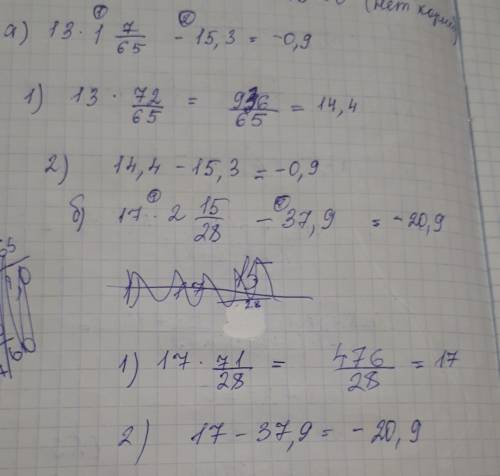 (нет корней)
а) 13 · 1 7/65 - 15,3 = -0,9
1) 13 · 72/65 = 936/65 = 14,4
2) 14,4 - 15,3 = -0,9
б) 17 · 2 15/28 - 37,9 = -20,9
1) 17 · 71/28 = 476/28 = 17
2) 17 - 37,9 = -20,9